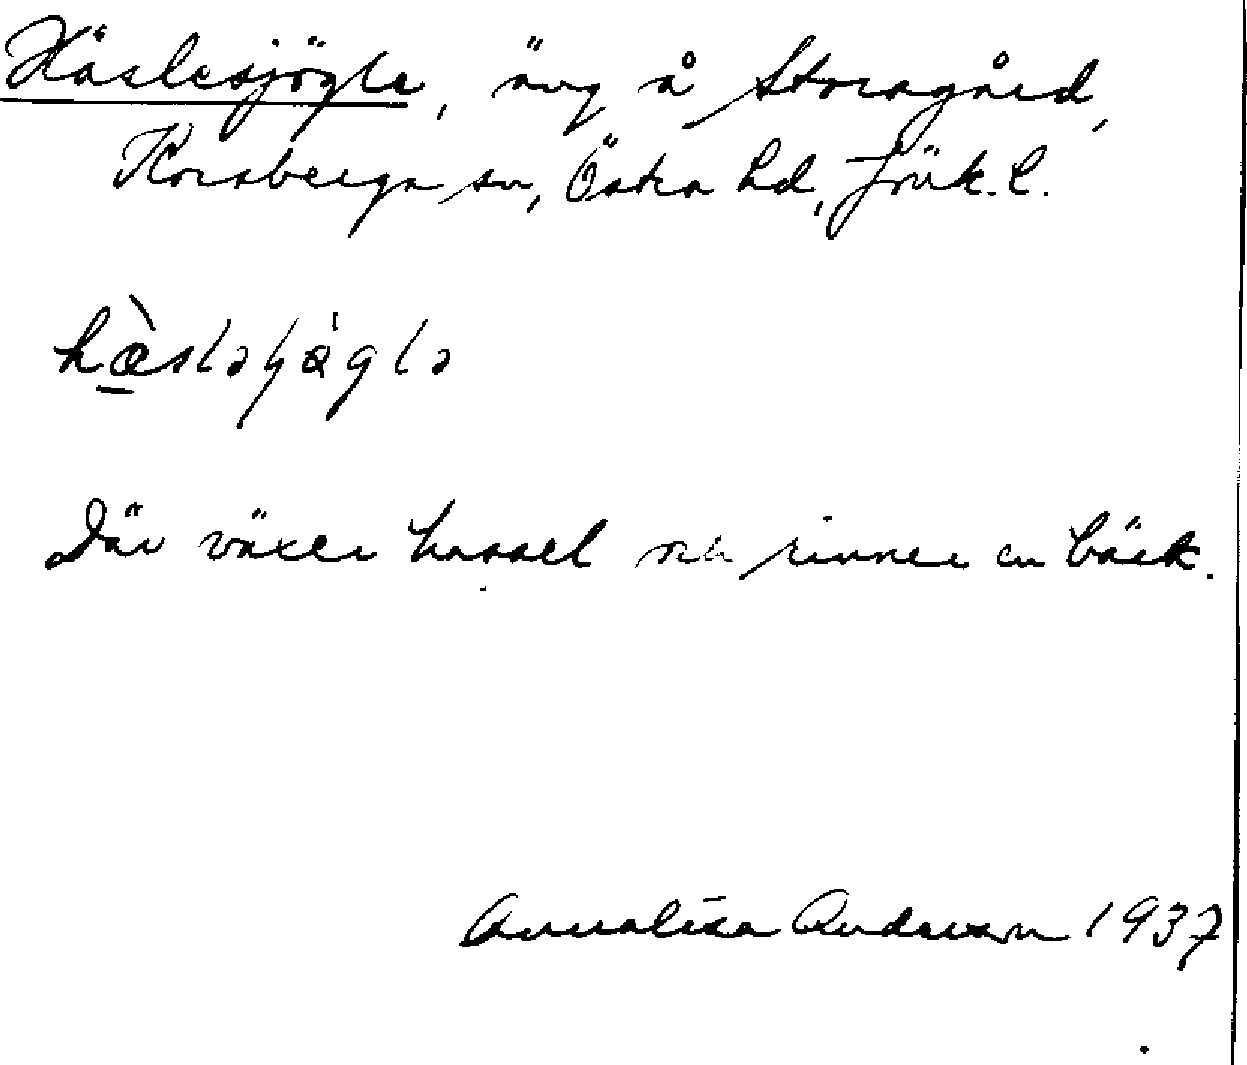 Häslesjögle, äng å Storagård,
Korsberga sn, Östra hd, Jönk. l.
hæ̀sləɧøglə
Där växer hassel och rinner en bäck.
Annalisa Andersson 1937